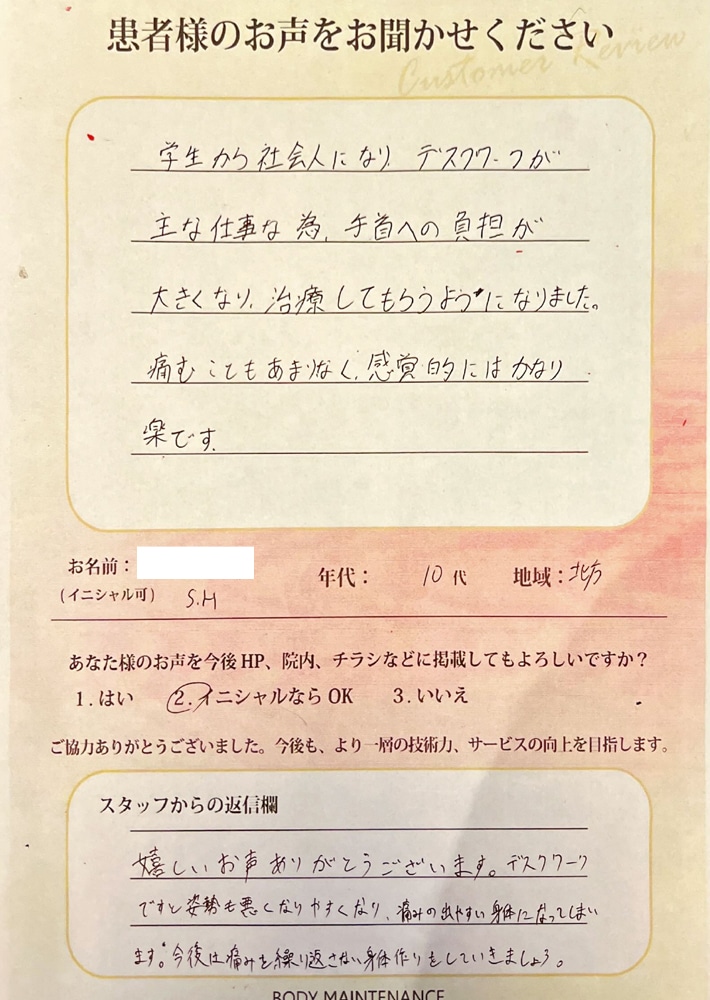 患者様のお声をお聞かせください
Customer Review
学生から社会人になり デスクワークが
主な仕事な為、手首への負担が
大きくなり、治療してもらうようになりました。
痛むこともあまりなく、感覚的にはかなり
楽です。
お名前：
(イニシャル可) S.H
年代： 10代 地域：北方
あなた様のお声を今後HP、院内、チラシなどに掲載してもよろしいですか？
1.はい 2.イニシャルならOK 3.いいえ
ご協力ありがとうございました。今後も、より一層の技術力、サービスの向上を目指します。
スタッフからの返信欄
嬉しいお声ありがとうございます。デスクワーク
ですと姿勢も悪くなりやすくなり、痛みの出やすい身体になってしまい
ます。今後は痛みを繰り返さない身体作りをしていきましょう。
BODY MAINTENANCE